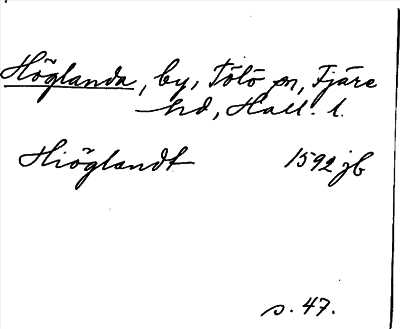 Höglanda, by, Tölö sn, Fjäre
hd, Hall. l.
Hiöglandt 1592 jb
s. 47.